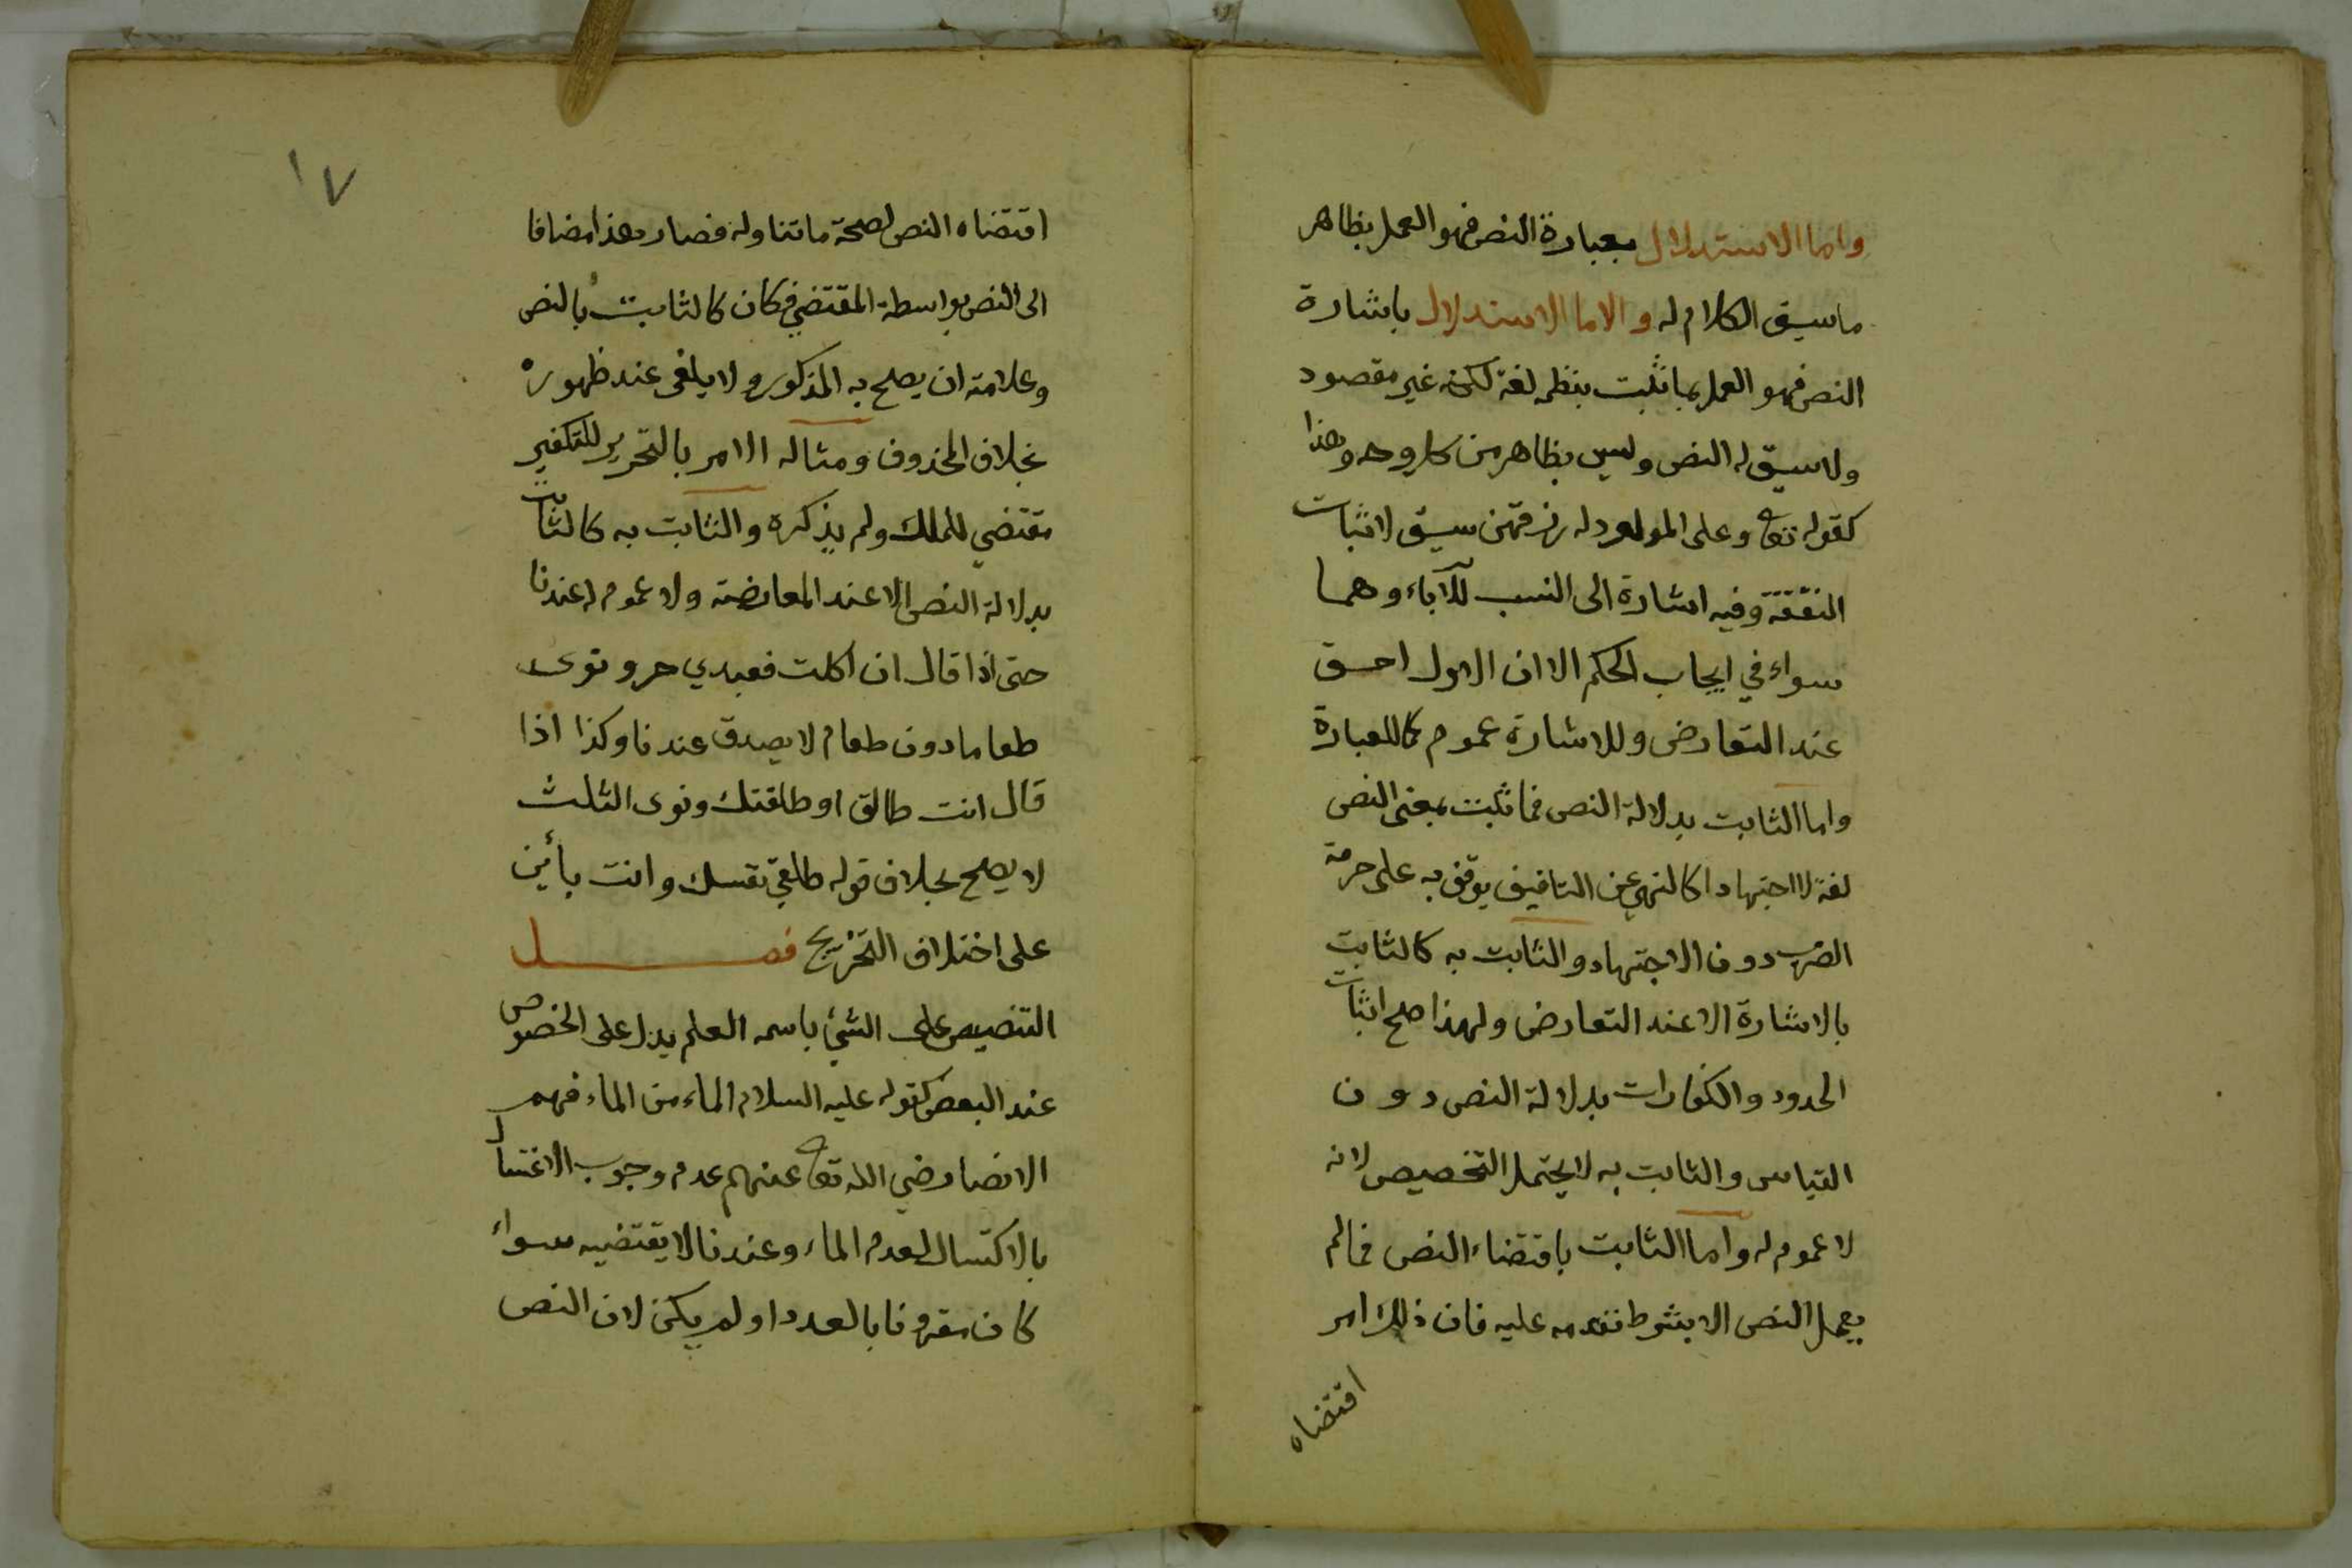 واما الاستدلال بعبارة النص فهو العمل بظاهر
ما سيق الكلام له والاما الاستدلال باشارة
النص فهو العمل بما ثبت بنظمه لغة لكنه غير مقصود
ولا سيق له النص وليس بظاهر من كل وجه وهذا
كقوله تعا وعلى المولود له رزقهن سيق لاثبات
النفقة وفيه اشارة الى النسب للآباء وهما
سواء في ايجاب الحكم الا ان الاول احق
عند التعارض وللاشارة عموم كما للعبارة
واما الثابت بدلالة النص فما ثبت بمعنى النص
لغة لا اجتهادا كالنهي عن التافيف يوقف به على حرمة
الضرب دون الاجتهاد والثابت به كالثابت
بالاشارة الا عند التعارض ولهذا صح اثبات
الحدود والكفارات بدلالة النص دون
القياس والثابت به لا يحتمل التخصيص لانه
لا عموم له واما الثابت باقتضاء النص فما لم
يعمل النص الا بشرط تقدمه عليه فان ذلك امر
اقتضاه
١٧
اقتضاه النص لصحة ما تناوله فصار هذا مضافا
الى النص بواسطة المقتضي فكان كالثابت بالنص
وعلامته ان يصلح به المذكور ولا يلغى عند ظهوره
بخلاف المحذوف ومثاله الامر بالتحرير للتكفير
مقتضي للملك ولم يذكره والثابت به كالثابت
بدلالة النص الا عند المعارضة ولا عموم له عندنا
حتى اذا قال ان اكلت فعبدي حر ونوى
طعاما دون طعام لا يصدق عندنا وكذا اذا
قال انت طالق او طلقتك ونوى الثلث
لا يصح بخلاف قوله طلقي نفسك وانت بأين
على اختلاف التخريج فصل
التنصيص على الشيء باسمه العلم يدل على الخصوص
عند البعض كقوله عليه السلام الماء من الماء فهم
الانصار رضي الله تعا عنهم عدم وجوب الاغتسال
بالاكتسال لعدم الماء وعندنا لا يقتضيه سواء
كان مقرونا بالعدد او لم يكن لان النص